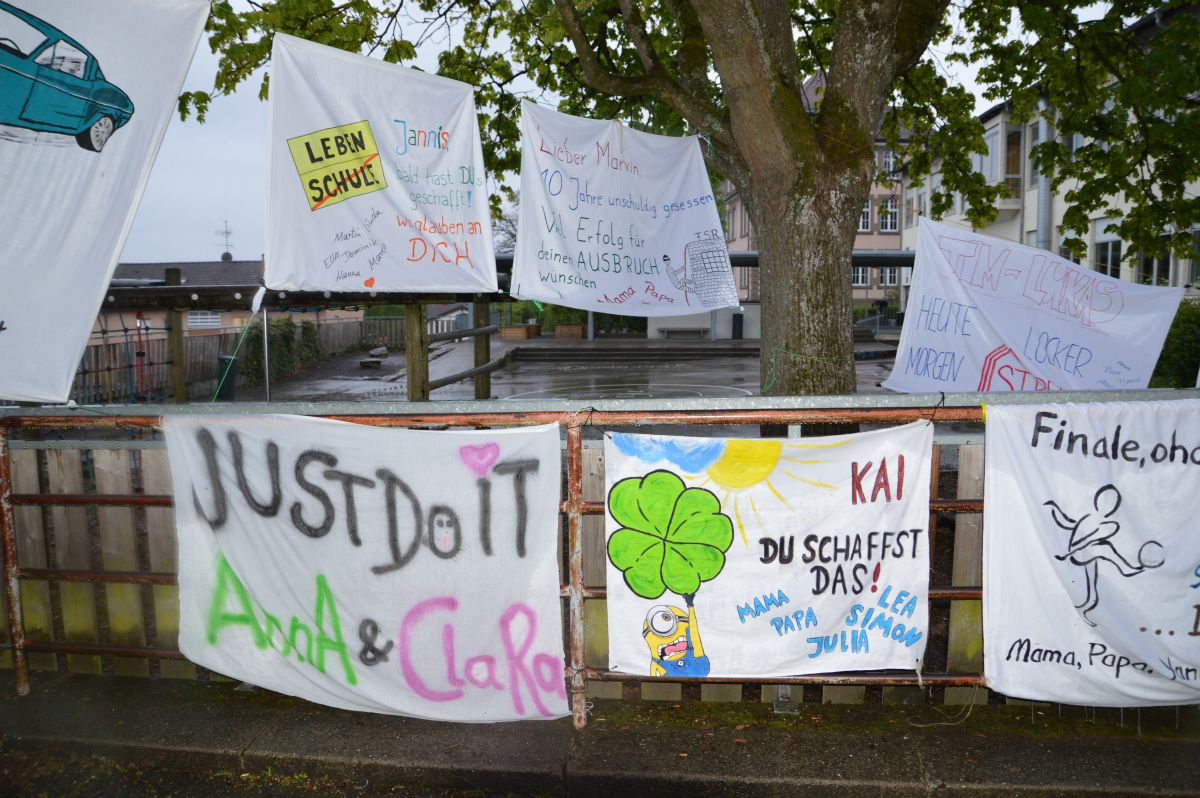 LEBEN
SCHULE
Jannis,
bald hast DU's
geschafft!
wir glauben an
DICH
Martin Linda
Ella Dominik
Hanna
Lieber Marvin,
10 Jahre unschuldig gesessen
Viel Erfolg für
deinen AUSBRUCH
wünschen
Mama Papa
TSR
TIM-LUKAS
HEUTE LOCKER
MORGEN
JUST DO iT
AnnA & ClaRa
KAI
DU SCHAFFST
DAS!
MAMA
PAPA
JULIA
LEA
SIMON
Finale, oho
Mama, Papa,